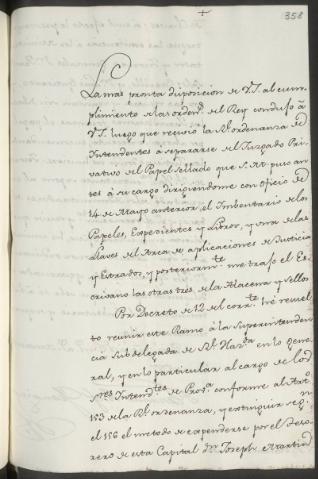 358
La mas pronta disposicion de V.S. al cum-
plimiento de las orden.s del Rey condujo à
V.S. luego que recivió la R.l ordenanza de
Intendentes à separarse del Juzgado Pri-
vativo del Papel sellado que S. M. puso an-
tes à su cargo dirigiendome con oficio de
14 de Mayo anterior el Imbentario de los
Papeles, Expedientes y Libros, y una de las
Llaves del Arca de aplicaciones de Justicia
y Estrados, y posteriorm.te me trajo el Es-
crivano las otras tres de la Alacena y Sellos
Por Decreto de 12 del corr.te hé resuel-
to reunir este Ramo à la Superintenden-
cia subdelegada de R.l Haz.da en lo gene-
ral, y en lo particular al cargo de los
S.res Intend.tes de Prov.a conforme al Art.o
153 de la R.l ordenanza, y extinguir seg.n
el 156 el metodo de expenderse por el Teso-
rero de esta Capital d.n Joseph Martin